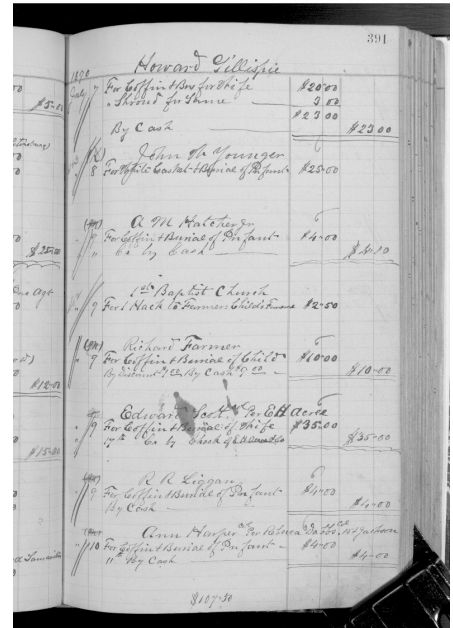 391
Howard Gillispie
1890
July 7 For Coffin & Box for Wife $20.00
" Shroud for Same 3 00
$23 00
By Cash $23 00
John W Younger
8 For White Casket & Burial of Infant $25.00
A M Hatcher Jr
9 For Coffin & Burial of Infant $4.00
" Cr by Cash
1st Baptist Church
9 For 1 Hack to Farmers Childs Funeral $2.50
Richard Farmer
9 For Coffin & Burial of Child $10.00
By Discount By Cash 9 00 $10.00
Edward Scott Per E H Acree
9 For Coffin & Burial of Wife $35.00
17th Cr by Check of $35.00
R R Liggan
9 For Coffin & Burial of Infant $4.00
By Cash $4.00
Ann Harper Per Jackson
10 For Coffin & Burial of Infant $4.00
11th By Cash $4.00
$107.50
$5.00
$25.00
$12.00
$15.00